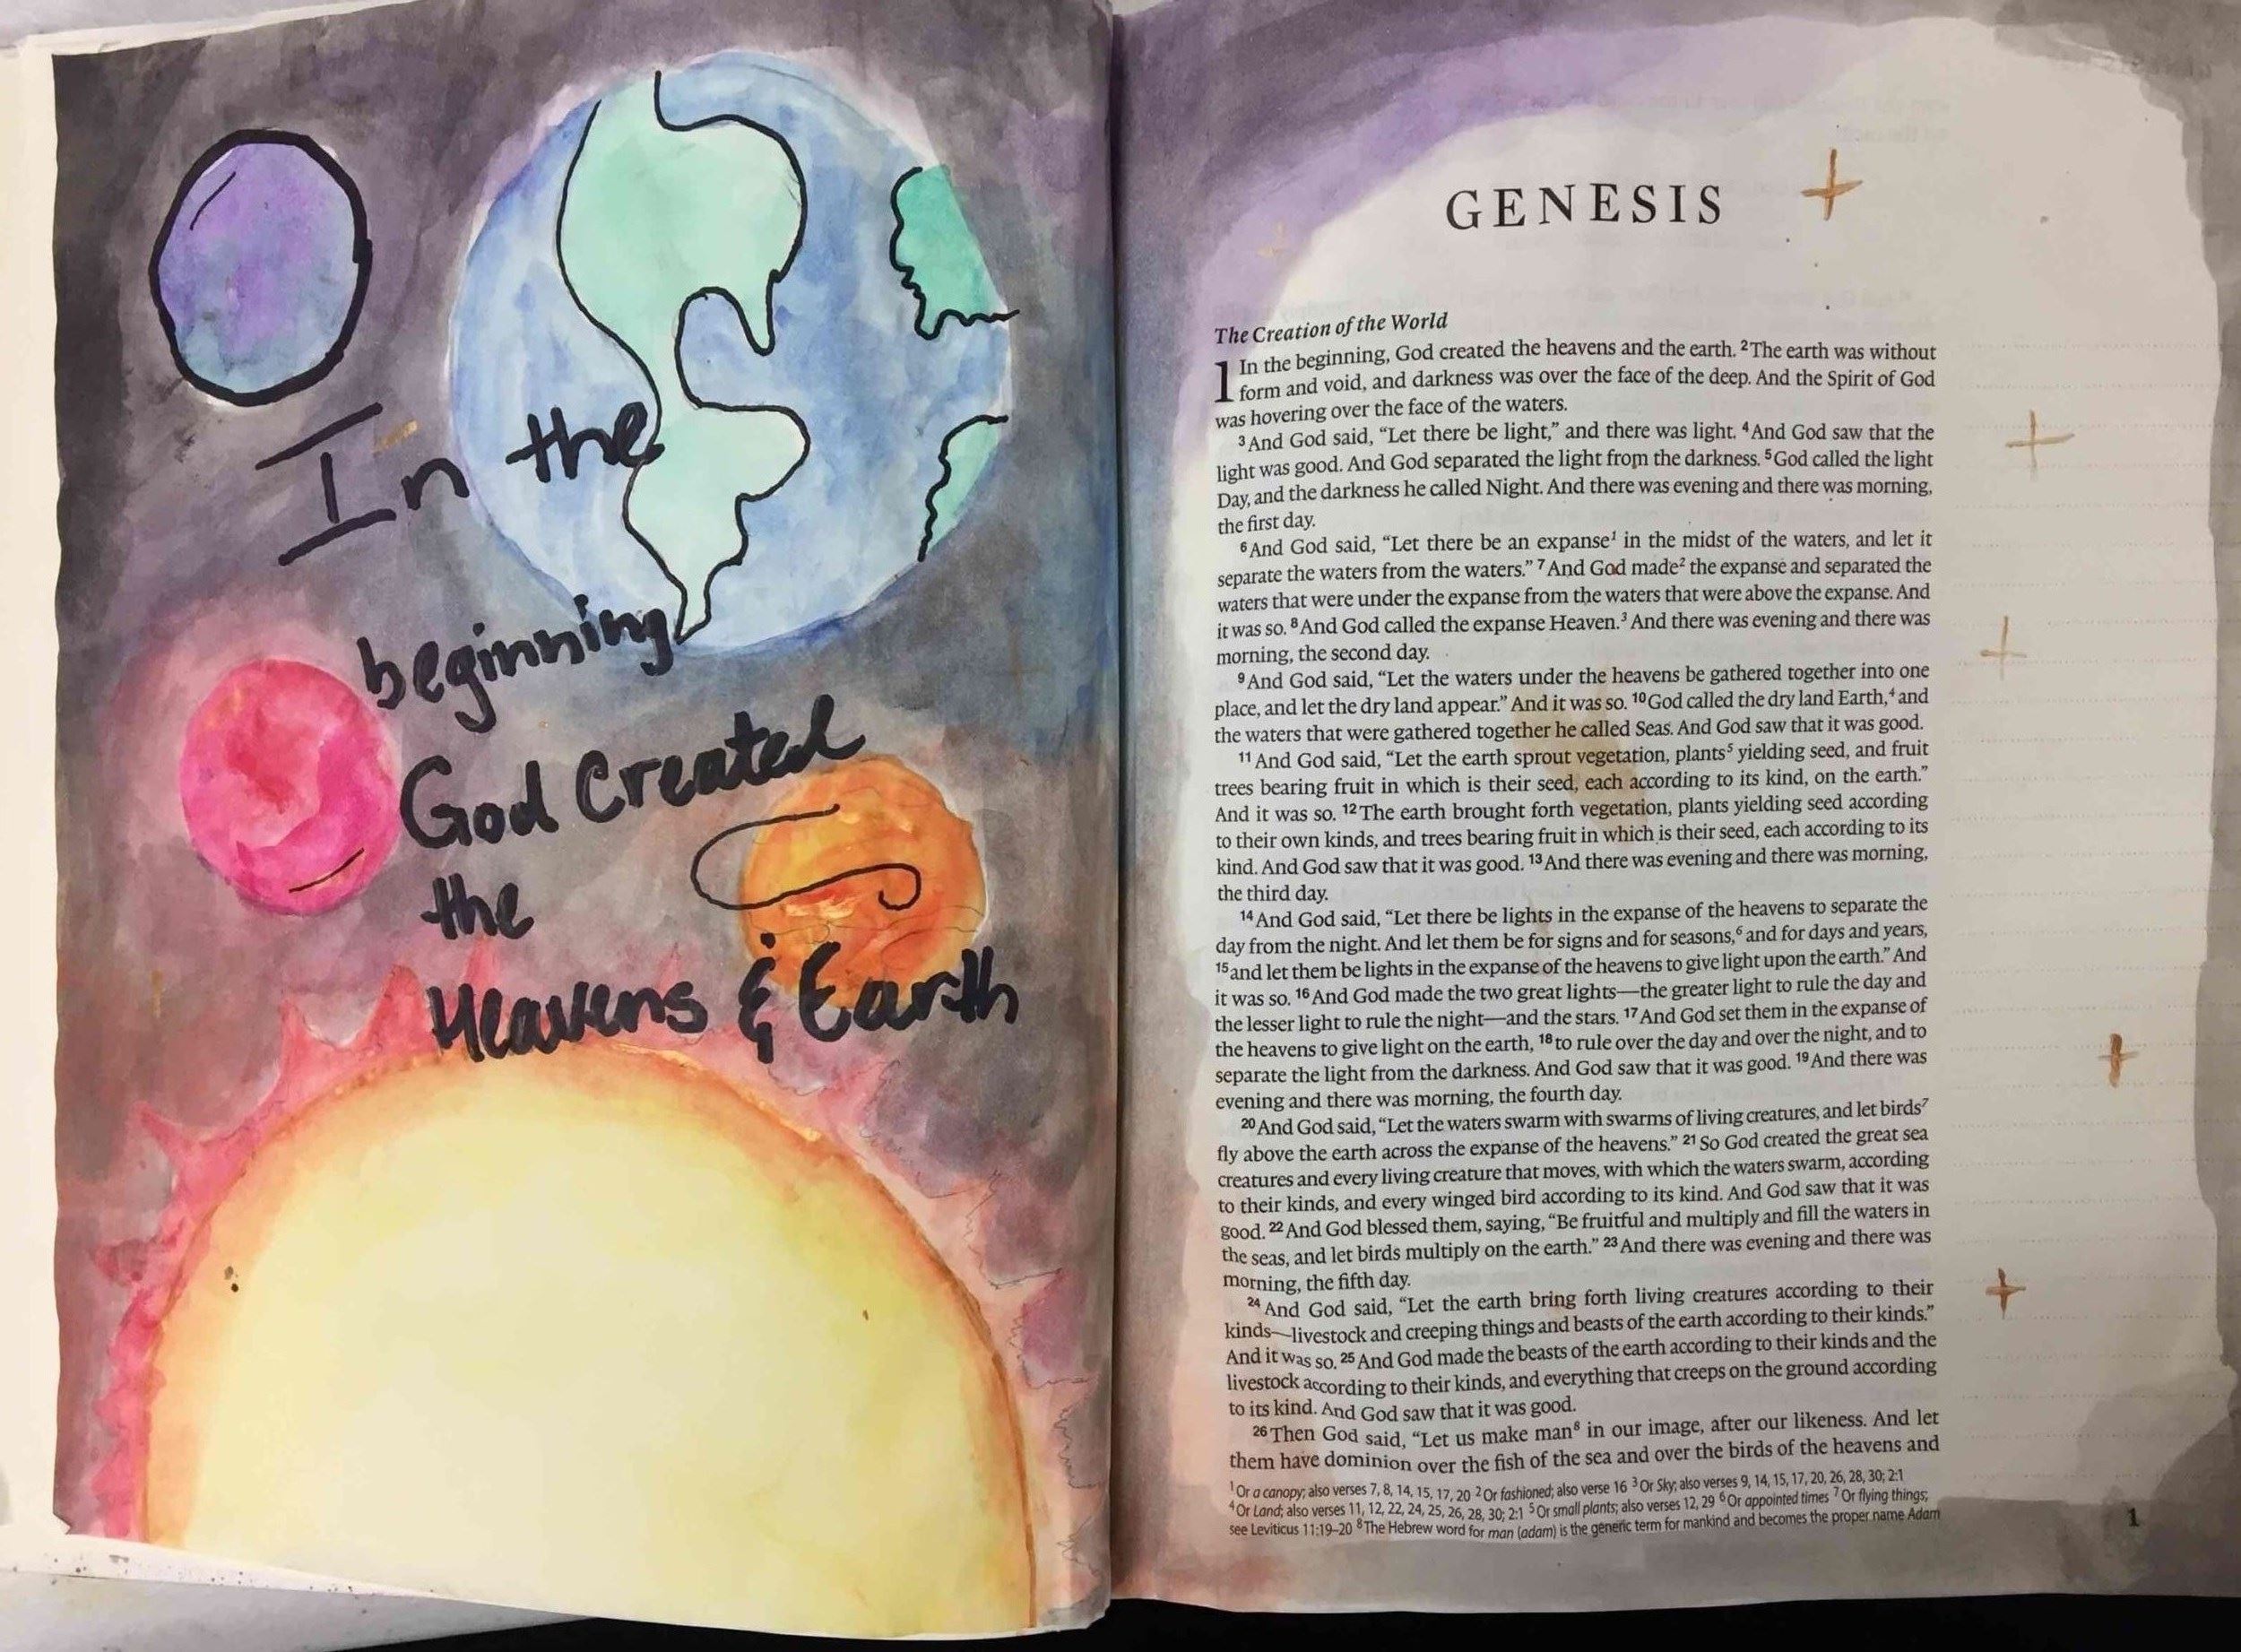 In the
beginning
God Created
the
Heavens & Earth
GENESIS
The Creation of the World
1 In the beginning, God created the heavens and the earth. 2 The earth was without
form and void, and darkness was over the face of the deep. And the Spirit of God
was hovering over the face of the waters.
3 And God said, “Let there be light,” and there was light. 4 And God saw that the
light was good. And God separated the light from the darkness. 5 God called the light
Day, and the darkness he called Night. And there was evening and there was morning,
the first day.
6 And God said, “Let there be an expanse1 in the midst of the waters, and let it
separate the waters from the waters.” 7 And God made2 the expanse and separated the
waters that were under the expanse from the waters that were above the expanse. And
it was so. 8 And God called the expanse Heaven.3 And there was evening and there was
morning, the second day.
9 And God said, “Let the waters under the heavens be gathered together into one
place, and let the dry land appear.” And it was so. 10 God called the dry land Earth,4 and
the waters that were gathered together he called Seas. And God saw that it was good.
11 And God said, “Let the earth sprout vegetation, plants5 yielding seed, and fruit
trees bearing fruit in which is their seed, each according to its kind, on the earth.”
And it was so. 12 The earth brought forth vegetation, plants yielding seed according
to their own kinds, and trees bearing fruit in which is their seed, each according to its
kind. And God saw that it was good. 13 And there was evening and there was morning,
the third day.
14 And God said, “Let there be lights in the expanse of the heavens to separate the
day from the night. And let them be for signs and for seasons,6 and for days and years,
15 and let them be lights in the expanse of the heavens to give light upon the earth.” And
it was so. 16 And God made the two great lights—the greater light to rule the day and
the lesser light to rule the night—and the stars. 17 And God set them in the expanse of
the heavens to give light on the earth, 18 to rule over the day and over the night, and to
separate the light from the darkness. And God saw that it was good. 19 And there was
evening and there was morning, the fourth day.
20 And God said, “Let the waters swarm with swarms of living creatures, and let birds7
fly above the earth across the expanse of the heavens.” 21 So God created the great sea
creatures and every living creature that moves, with which the waters swarm, according
to their kinds, and every winged bird according to its kind. And God saw that it was
good. 22 And God blessed them, saying, “Be fruitful and multiply and fill the waters in
the seas, and let birds multiply on the earth.” 23 And there was evening and there was
morning, the fifth day.
24 And God said, “Let the earth bring forth living creatures according to their
kinds—livestock and creeping things and beasts of the earth according to their kinds.”
And it was so. 25 And God made the beasts of the earth according to their kinds and the
livestock according to their kinds, and everything that creeps on the ground according
to its kind. And God saw that it was good.
26 Then God said, “Let us make man8 in our image, after our likeness. And let
them have dominion over the fish of the sea and over the birds of the heavens and
1 Or a canopy; also verses 7, 8, 14, 15, 17, 20 2 Or fashioned; also verse 16 3 Or Sky; also verses 9, 14, 15, 17, 20, 26, 28, 30; 2:1
4 Or Land; also verses 11, 12, 22, 24, 25, 26, 28, 30; 2:1 5 Or small plants; also verses 12, 29 6 Or appointed times 7 Or flying things;
see Leviticus 11:19–20 8 The Hebrew word for man (adam) is the generic term for mankind and becomes the proper name Adam
1